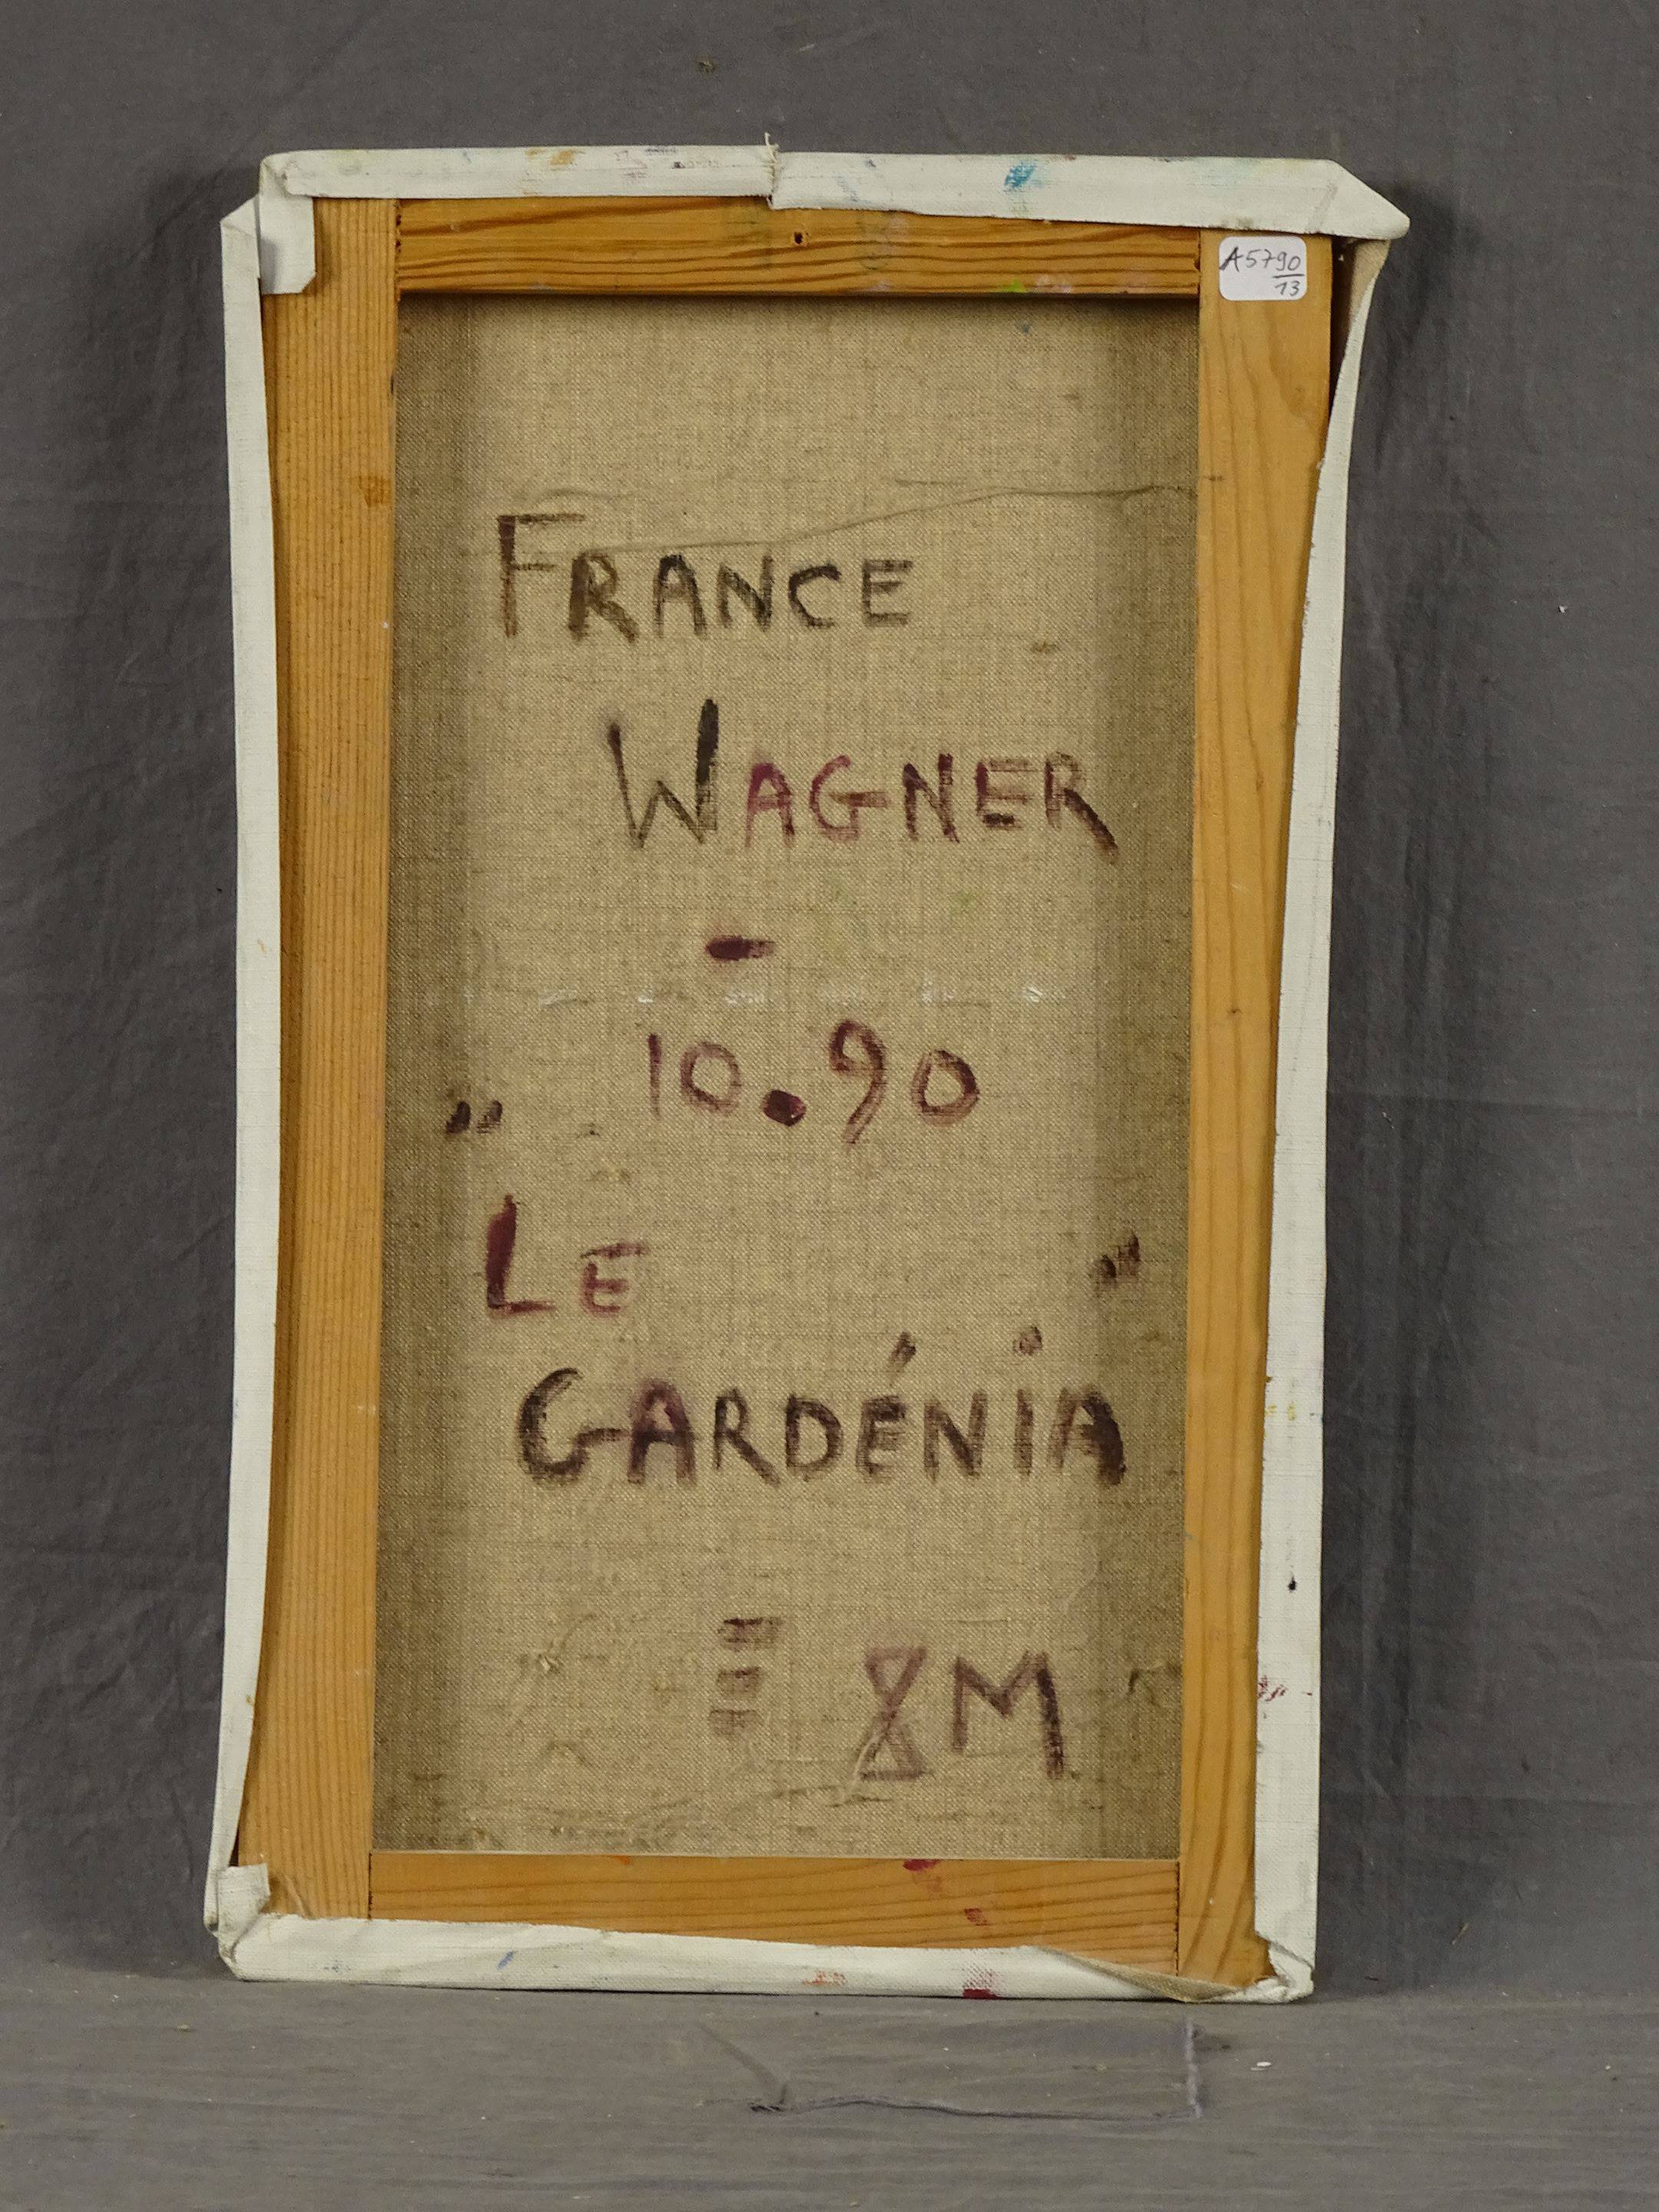 A5790
13
FRANCE
WAGNER
-
10.90
„ LE ”
GARDÉNIA
8M